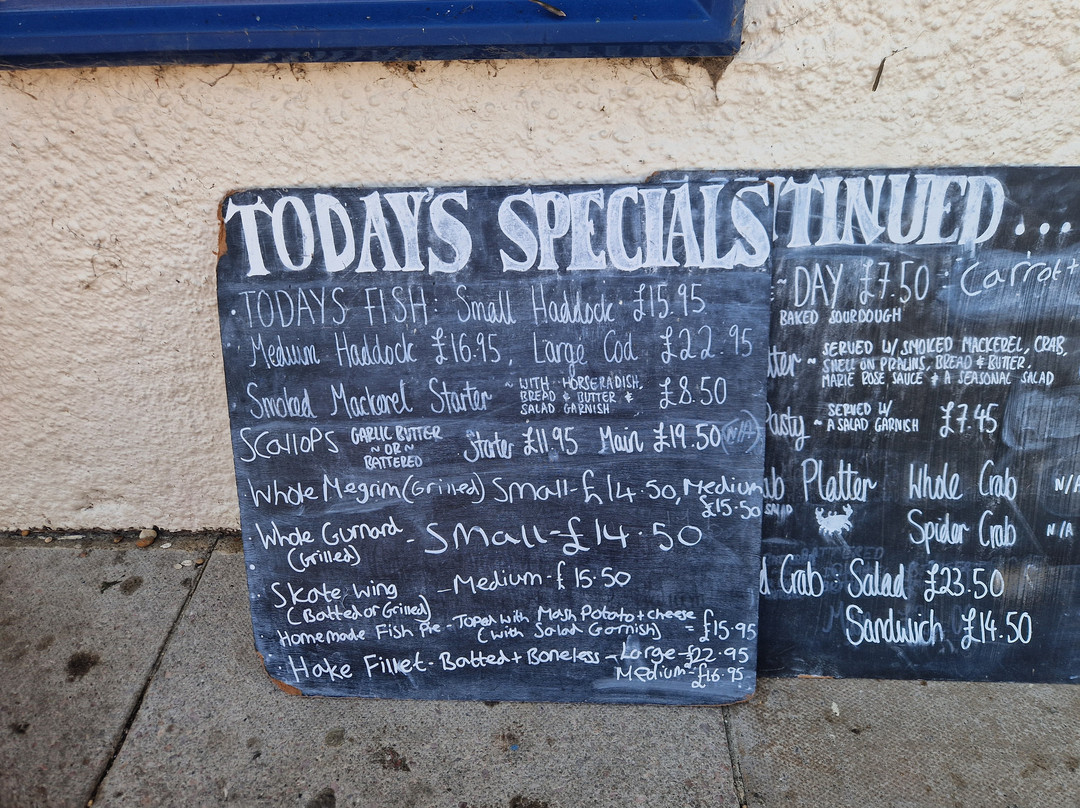 TODAY'S SPECIALS
TODAYS FISH: Small Haddock £15.95
Medium Haddock £16.95, Large Cod £22.95
Smoked Mackerel Starter ~ WITH HORSERADISH, BREAD & BUTTER & SALAD GARNISH £8.50
SCALLOPS GARLIC BUTTER ~ OR ~ BATTERED Starter £11.95 Main £19.50 (N/A)
Whole Megrim (Grilled) Small - £14.50, Medium £15.50
Whole Gurnard (Grilled) - Small - £14.50
Skate wing (Batted or Grilled) - Medium - £15.50
Homemade Fish Pie - Toped with Mash Potato + cheese (with Salad Garnish) = £15.95
Hake Fillet - Batted + Boneless - Large - £22.95
Medium - £16.95
TINUED...
~ DAY £7.50 - Carrot +
BAKED SOURDOUGH
tter ~ SERVED W/ SMOKED MACKEREL, CRAB,
SHELL ON PRAWNS, BREAD & BUTTER,
MARIE ROSE SAUCE & A SEASONAL SALAD
Pasty ~ SERVED W/ A SALAD GARNISH £7.45
ab Platter Whole Crab N/A
Spider Crab N/A
d Crab Salad £23.50
Sandwich £14.50